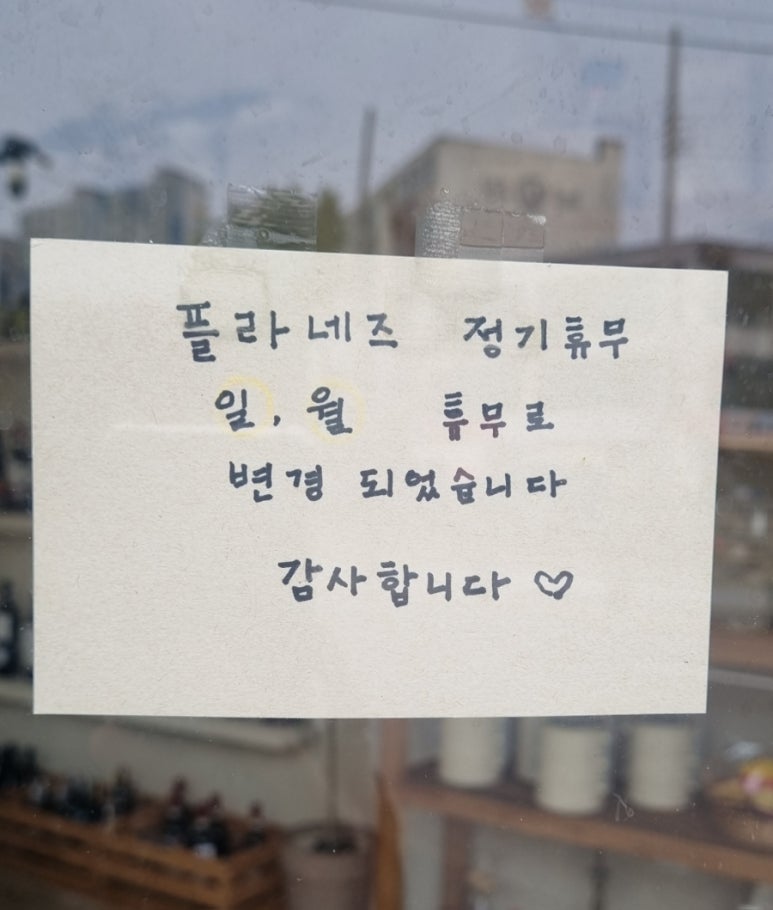 플라네즈 정기휴무
일, 월 휴무로
변경 되었습니다
감사합니다 ♡